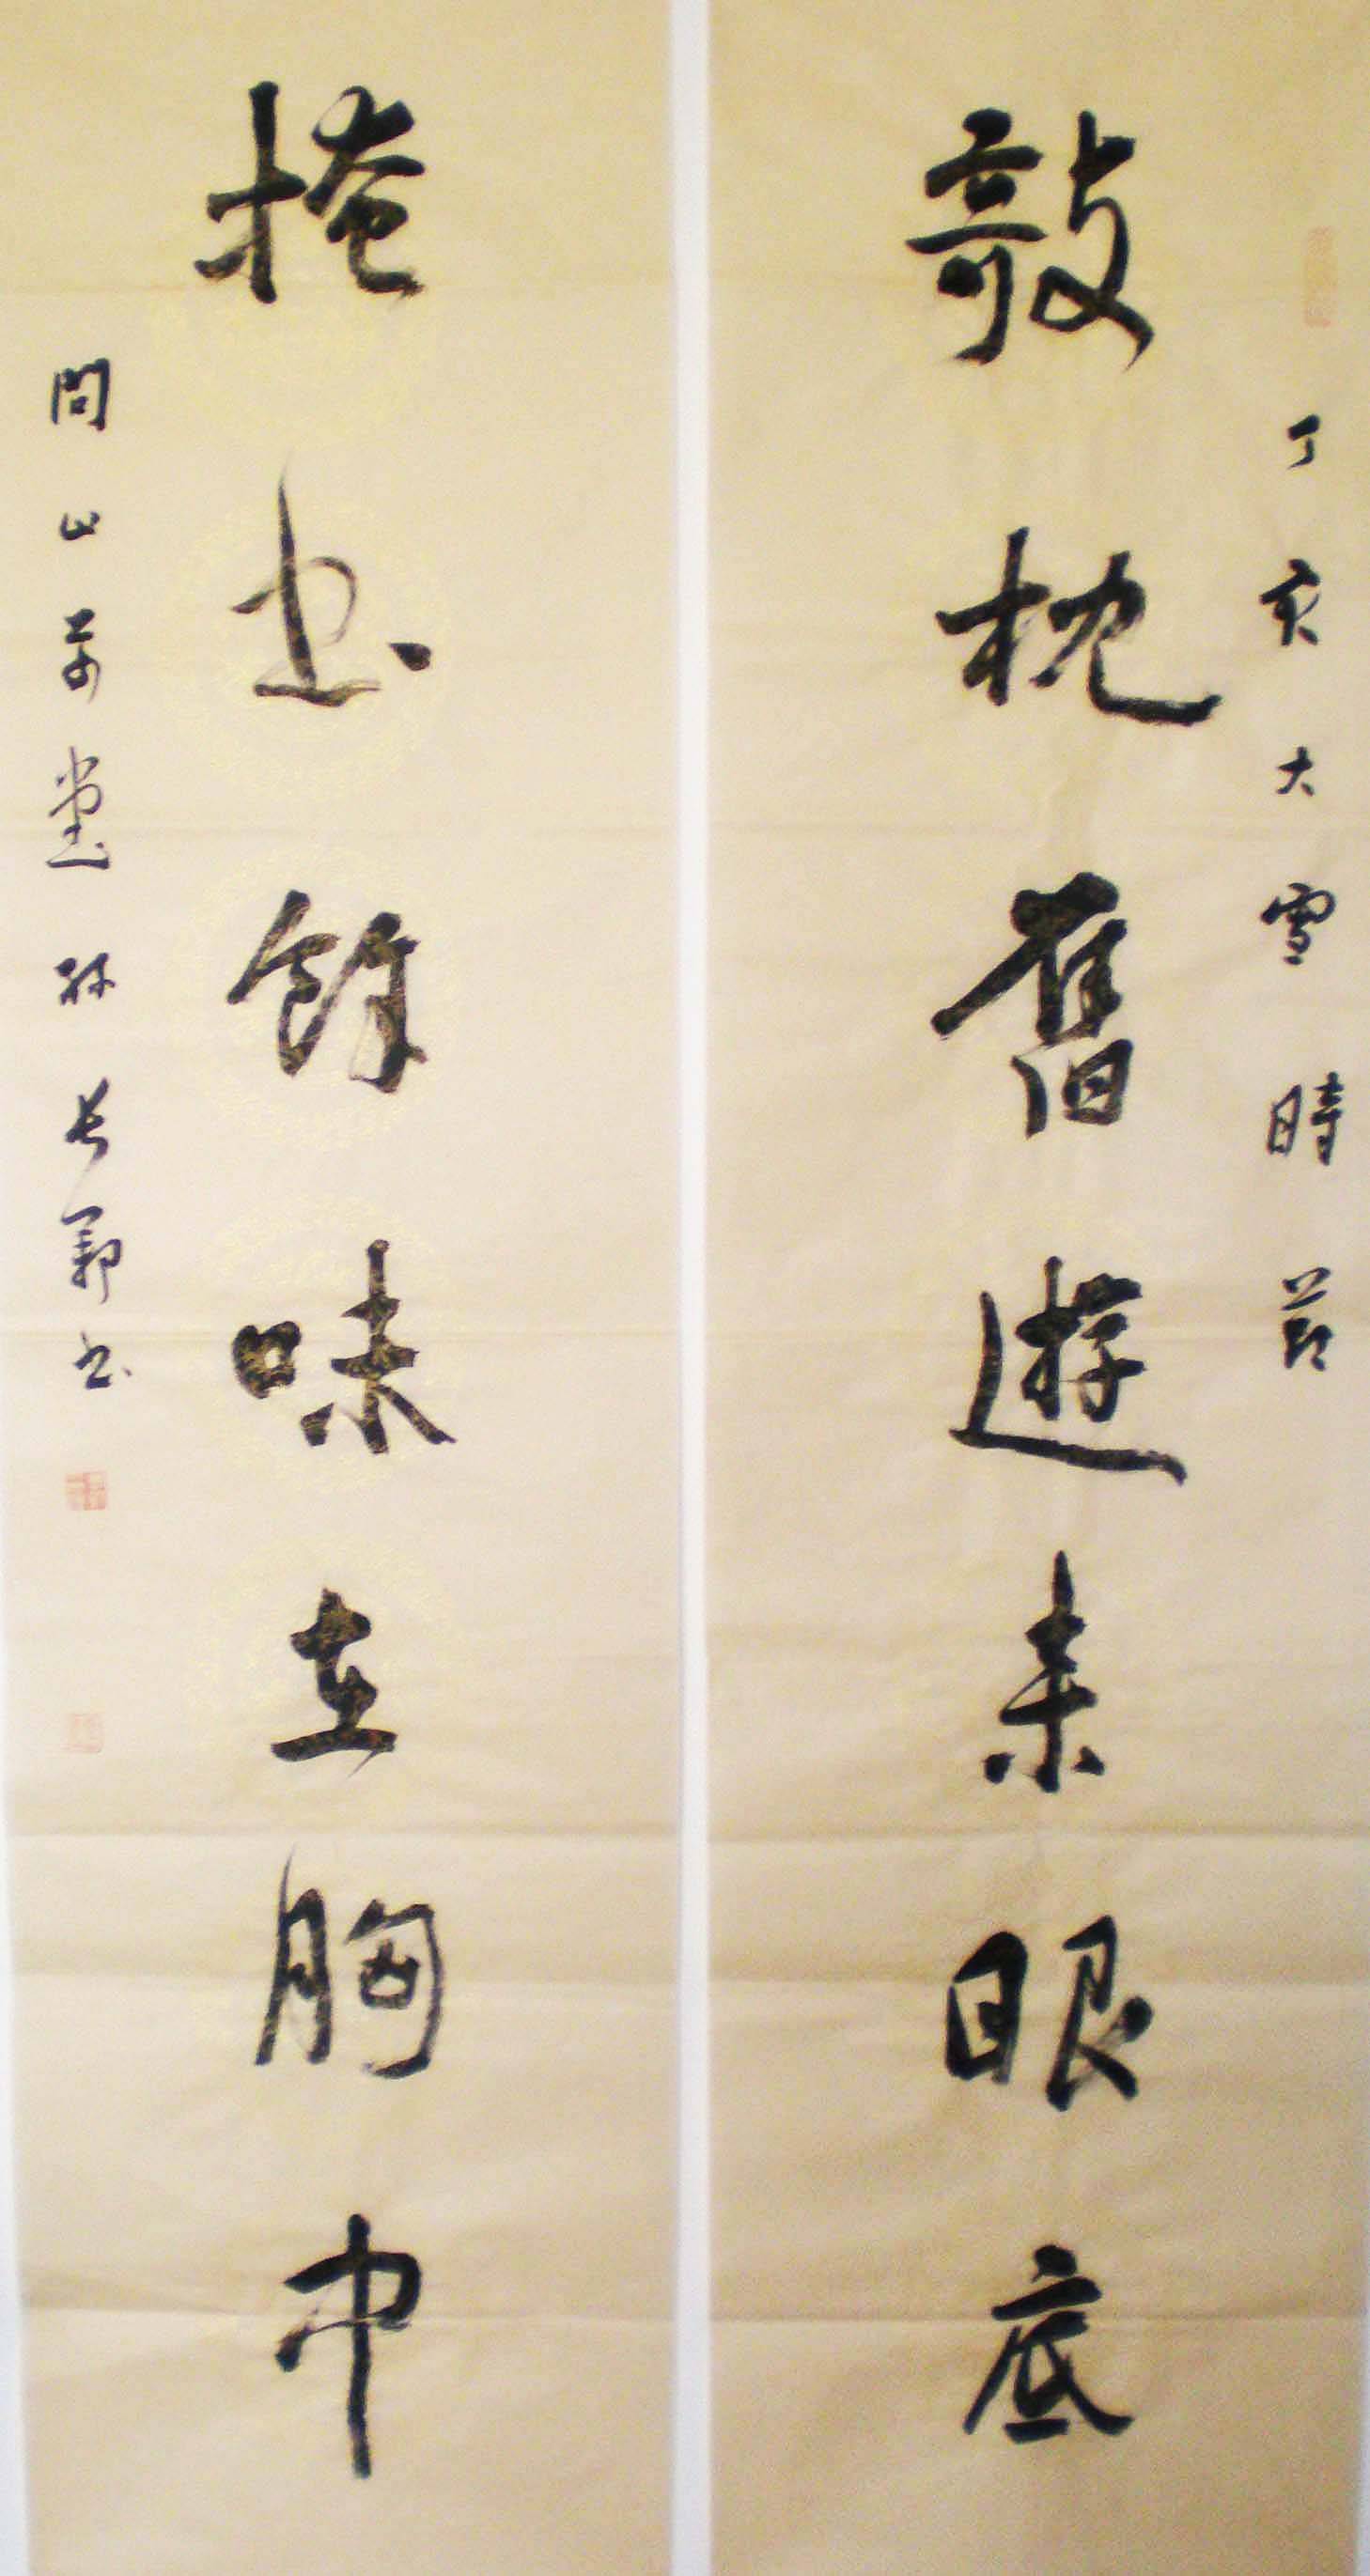 丁亥大雪時節
敧枕舊遊來眼底
掩書餘味在胸中
問山草堂孫長郭書